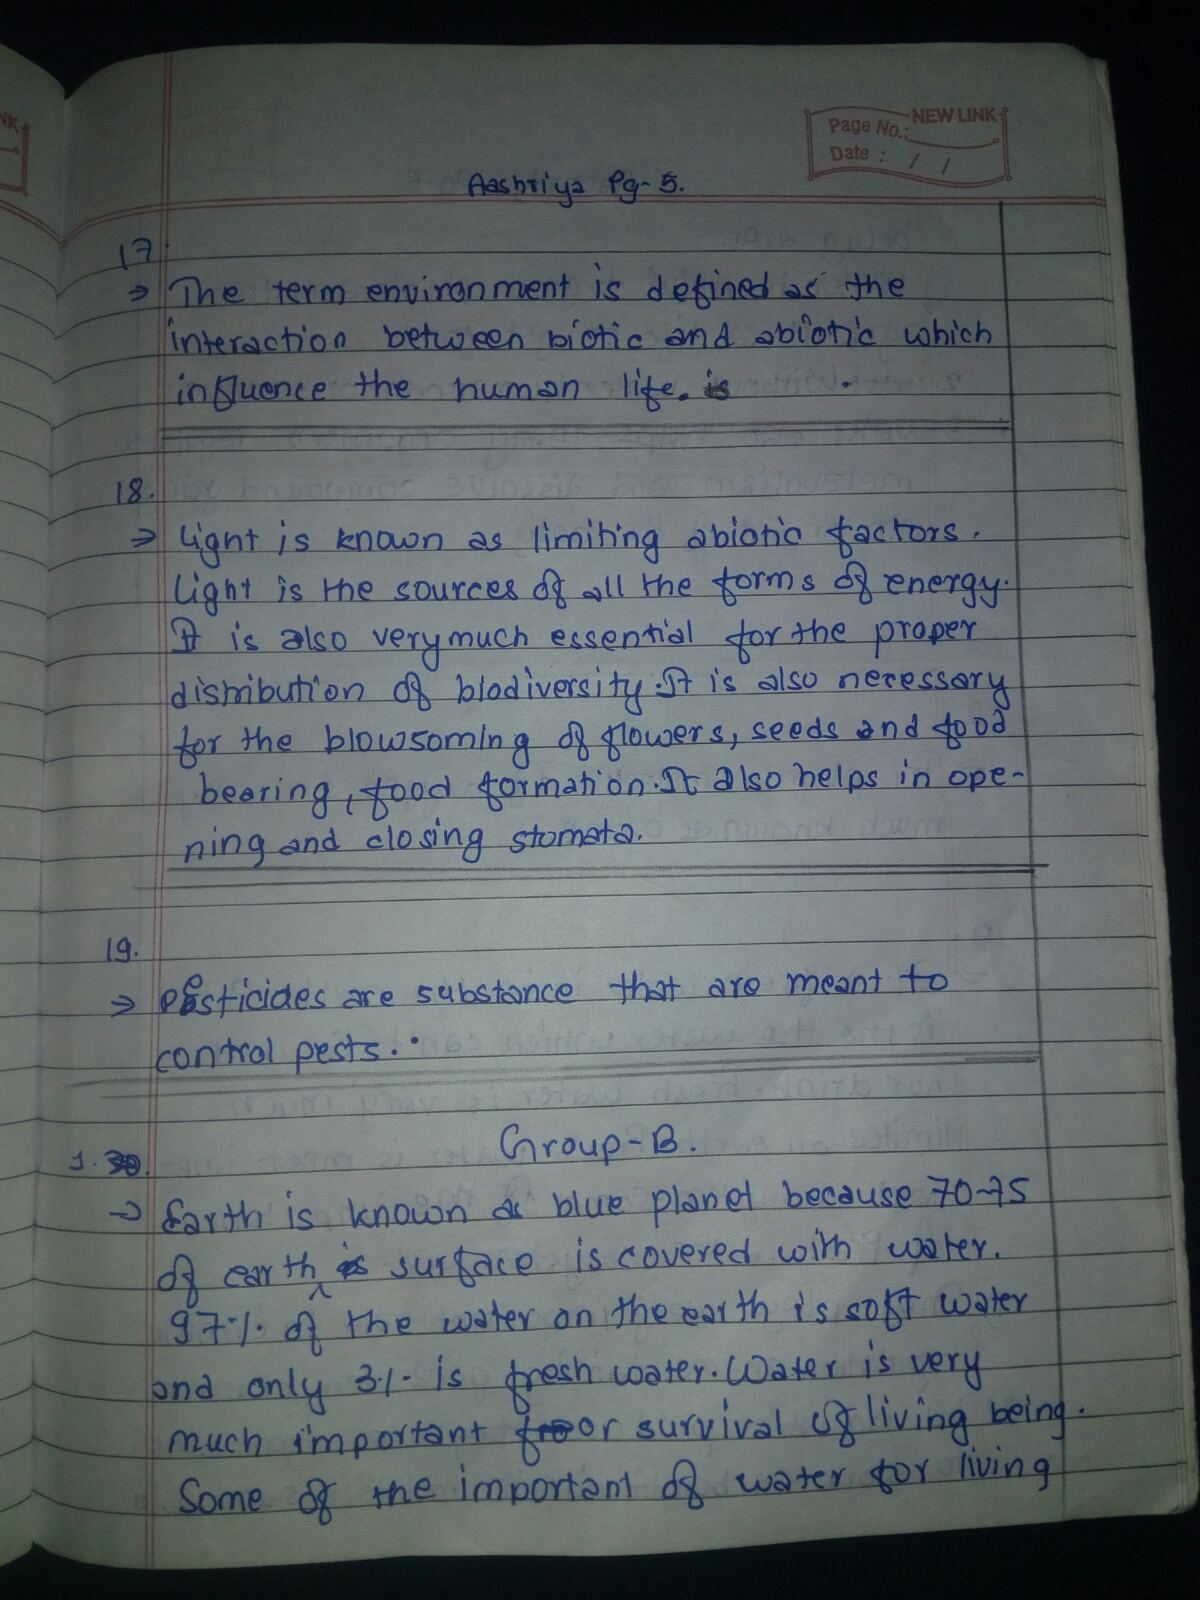 NEW LINK
Page No.:
Date : / /
Aashriya Pg-5.
17
→ The term environment is defined as the
interaction between biotic and abiotic which
influence the human life.
18.
→ Light is known as limiting abiotic factors.
Light is the sources of all the forms of energy.
It is also very much essential for the proper
distribution of biodiversity. It is also necessary
for the blowsoming of flowers, seeds and food
bearing, food formation. It also helps in ope-
ning and closing stomata.
19.
→ Pesticides are substance that are meant to
control pests.
Group-B.
1.
→ Earth is known as blue planet because 70-75
of earth surface is covered with water.
97% of the water on the earth is soft water
and only 3% is fresh water. Water is very
much important for survival of living being.
Some of the important of water for living